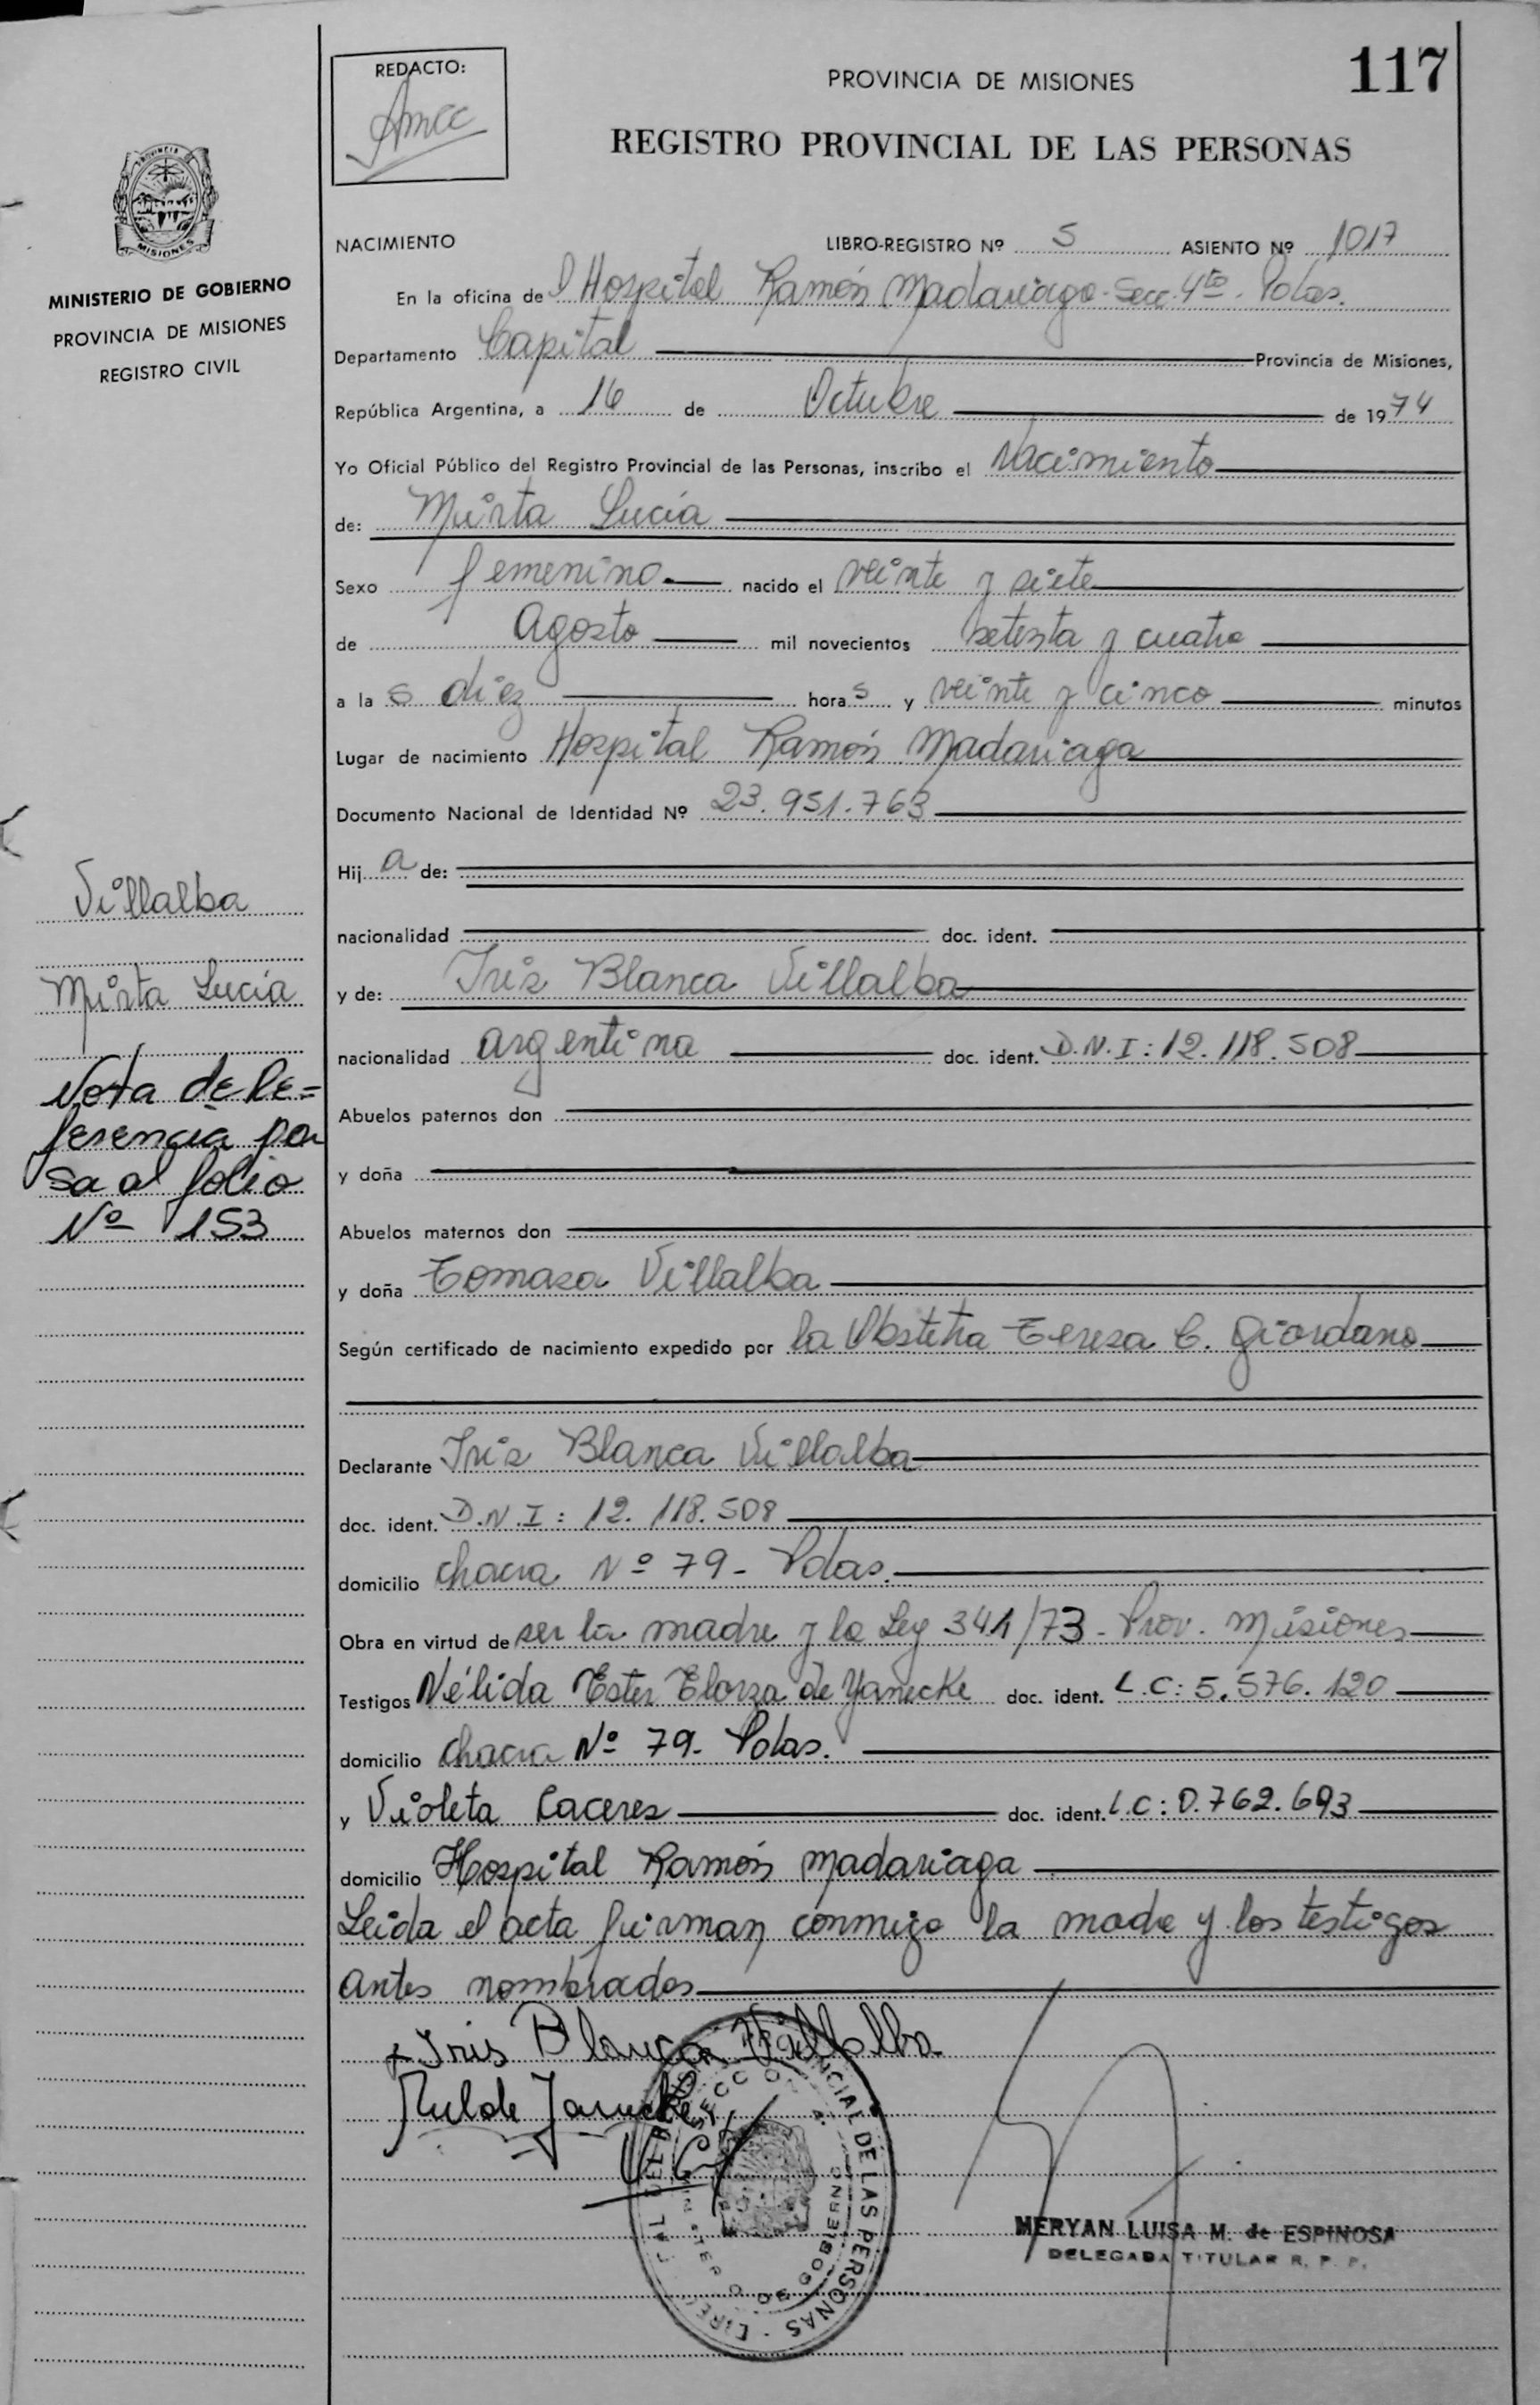 REDACTO:
PROVINCIA DE MISIONES
117
REGISTRO PROVINCIAL DE LAS PERSONAS
MISIONES
MINISTERIO DE GOBIERNO
PROVINCIA DE MISIONES
REGISTRO CIVIL
NACIMIENTO LIBRO-REGISTRO Nº 5 ASIENTO Nº 1017
En la oficina de l Hospital Ramón Madariaga - Secc. 4ta - Pdas.
Departamento Capital Provincia de Misiones,
República Argentina, a 16 de Octubre de 1974
Yo Oficial Público del Registro Provincial de las Personas, inscribo el Nacimiento
de: Mirta Lucía
Sexo femenino nacido el veinte y siete
de Agosto mil novecientos setenta y cuatro
a la s diez hora s y veinte y cinco minutos
Lugar de nacimiento Hospital Ramón Madariaga
Documento Nacional de Identidad Nº 23.951.763
Hij a de:
nacionalidad doc. ident.
y de: Iris Blanca Villalba
nacionalidad argentina doc. ident. D.N.I: 12.118.508
Abuelos paternos don
y doña
Abuelos maternos don
y doña Tomasa Villalba
Según certificado de nacimiento expedido por la Obstetra Teresa C. Giordano
Declarante Iris Blanca Villalba
doc. ident. D.N.I: 12.118.508
domicilio chacra Nº 79 - Pdas.
Obra en virtud de ser la madre y la Ley 341/73 - Prov. Misiones
Testigos Nélida Ester Elorza de Yanecke doc. ident. L.C: 5.576.120
domicilio chacra Nº 79 - Pdas.
y Violeta Caceres doc. ident. L.C: 0.762.693
domicilio Hospital Ramón Madariaga
Leida el acta firman conmigo la madre y los testigos
antes nombrados
Iris Blanca Villalba
MERYAN LUISA M. de ESPINOSA
DELEGADA TITULAR R. P. P.
Villalba
Mirta Lucía
Nota de Re=
ferencia pa
sa al folio
Nº 153